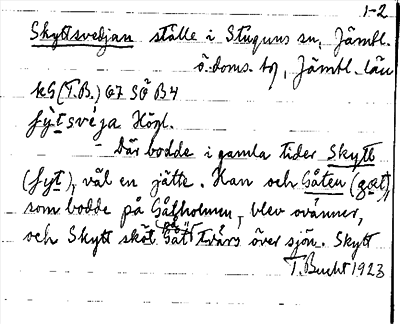 1-2
Skyttsvedjan ställe i Stuguns sn, Jämtl.
ö. doms. tg, Jämtl. län
kG (T.B.) 67 SÖ B4
ʃy̱tsvéja Högl.
- Där bodde i gamla tider Skytt
(ʃyt), väl en jätte. Han och Gåten (gɑt),
som bodde på Gåtholmen, blev ovänner,
och Skytt sköt Gåt tvärs över sjön. Skytt
T. Bucht 1923